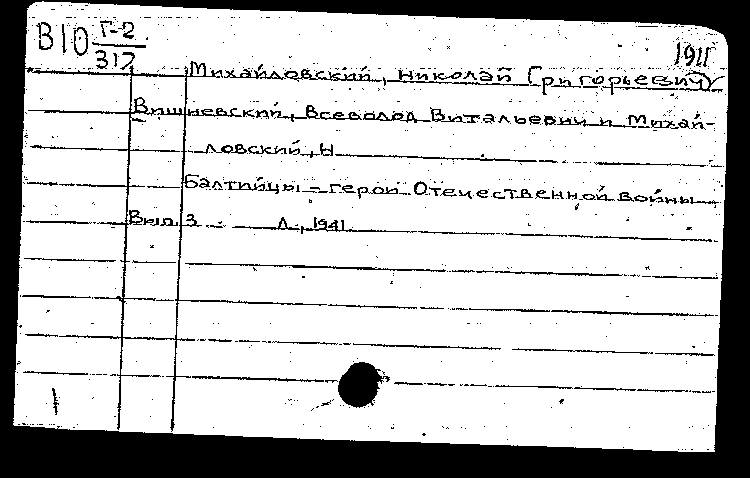 В10 Г-2
317
1911
Михайловский, Николай Григорьевич
Вишневский, Всеволод Витальевич и Михай-
ловский, Н
Балтийцы - герои Отечественной войны
Вып. 3 Л., 1941
1